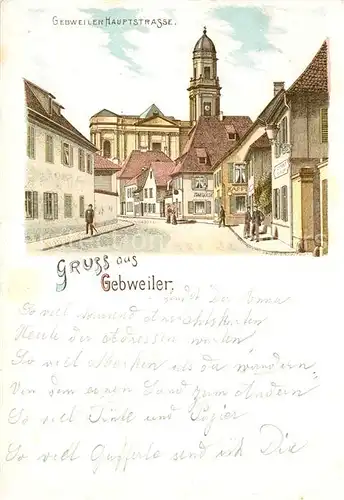 GEBWEILER HAUPTSTRASSE.
GRUSS aus
Gebweiler.
sendet Dir Emma
So viel tausend Ansichtskarten
Heute der Adressen warten
So viel Marken als da wandern
Von dem einen Land zum Andern
So viel Tinte und Papier
So viel Grüße send ich Dir